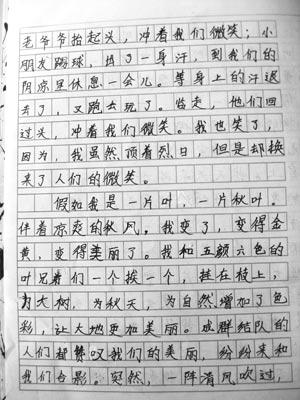 老爷爷抬起头，冲着我们微笑；小
朋友踢球，出了一身汗，到我们的
阴凉里休息一会儿。等身上的汗退
去了，又跑去玩了。临走，他们回
过头，冲着我们微笑。我也笑了，
因为，我虽然顶着烈日，但是却换
来了人们的微笑。
假如我是一片叶，一片秋叶。
伴着凉爽的秋风。我变了，变得金
黄，变得美丽了。我和五颜六色的
叶兄弟们一个挨一个，挂在枝上，
为大树，为秋天，为自然增加了色
彩，让大地更加美丽。成群结队的
人们都赞叹我们的美丽，纷纷来和
我们合影。突然，一阵清风吹过，